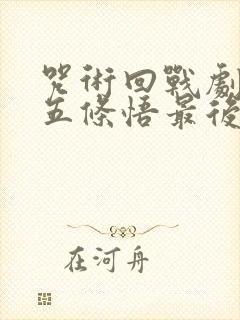 咒術回戰劇
五條悟最後
在河舟